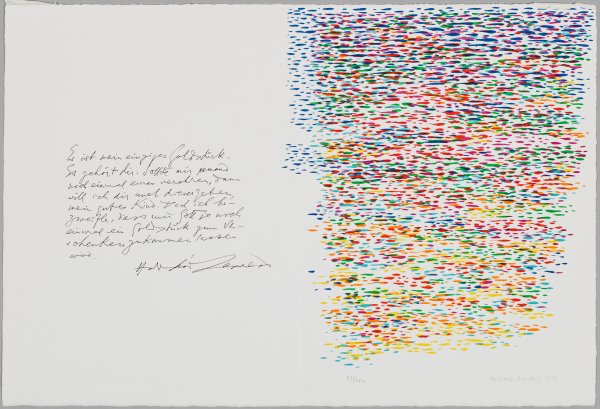 Es ist mein einziges Goldstück.
Es gehört dir. Sollte mir jemand
noch einmal eines verehren, dann
will ich dir auch dieses geben,
mein gutes Kind. Doch ich be-
zweifle, dass mir Gott je noch
einmal ein Goldstück zum Ve-
schenken zukommen lassen
wird.